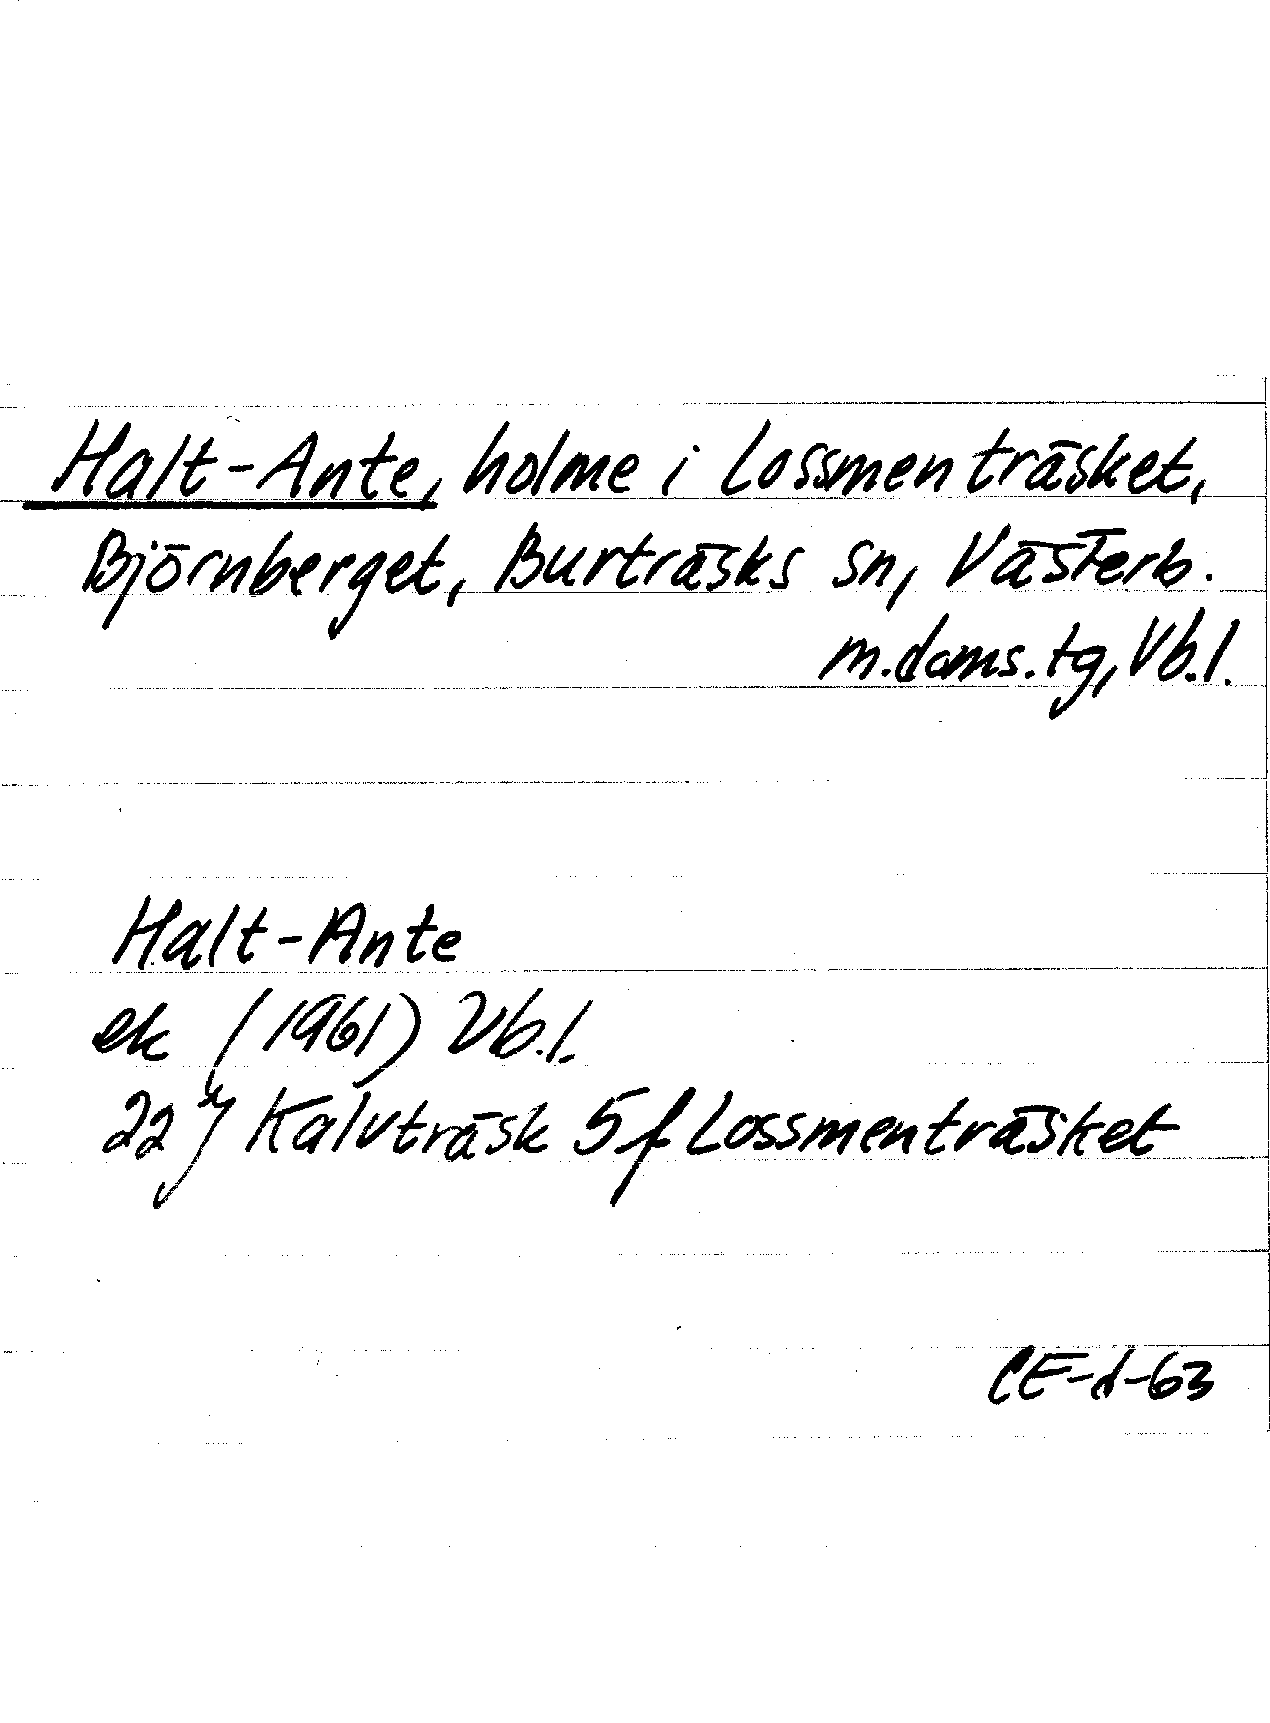 Halt-Ante, holme i Lossmenträsket,
Björnberget, Burträsks sn, Västerb.
m.doms.tg, Vb.l.
Halt-Ante
ek (1961) Vb.l.
22 J Kalvträsk 5 f Lossmenträsket
CE-d-63